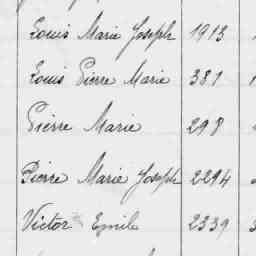 Louis Marie Joseph 1913
Louis Pierre Marie 381
Pierre Marie 298
Pierre Marie Joseph 2294
Victor Emile 2339